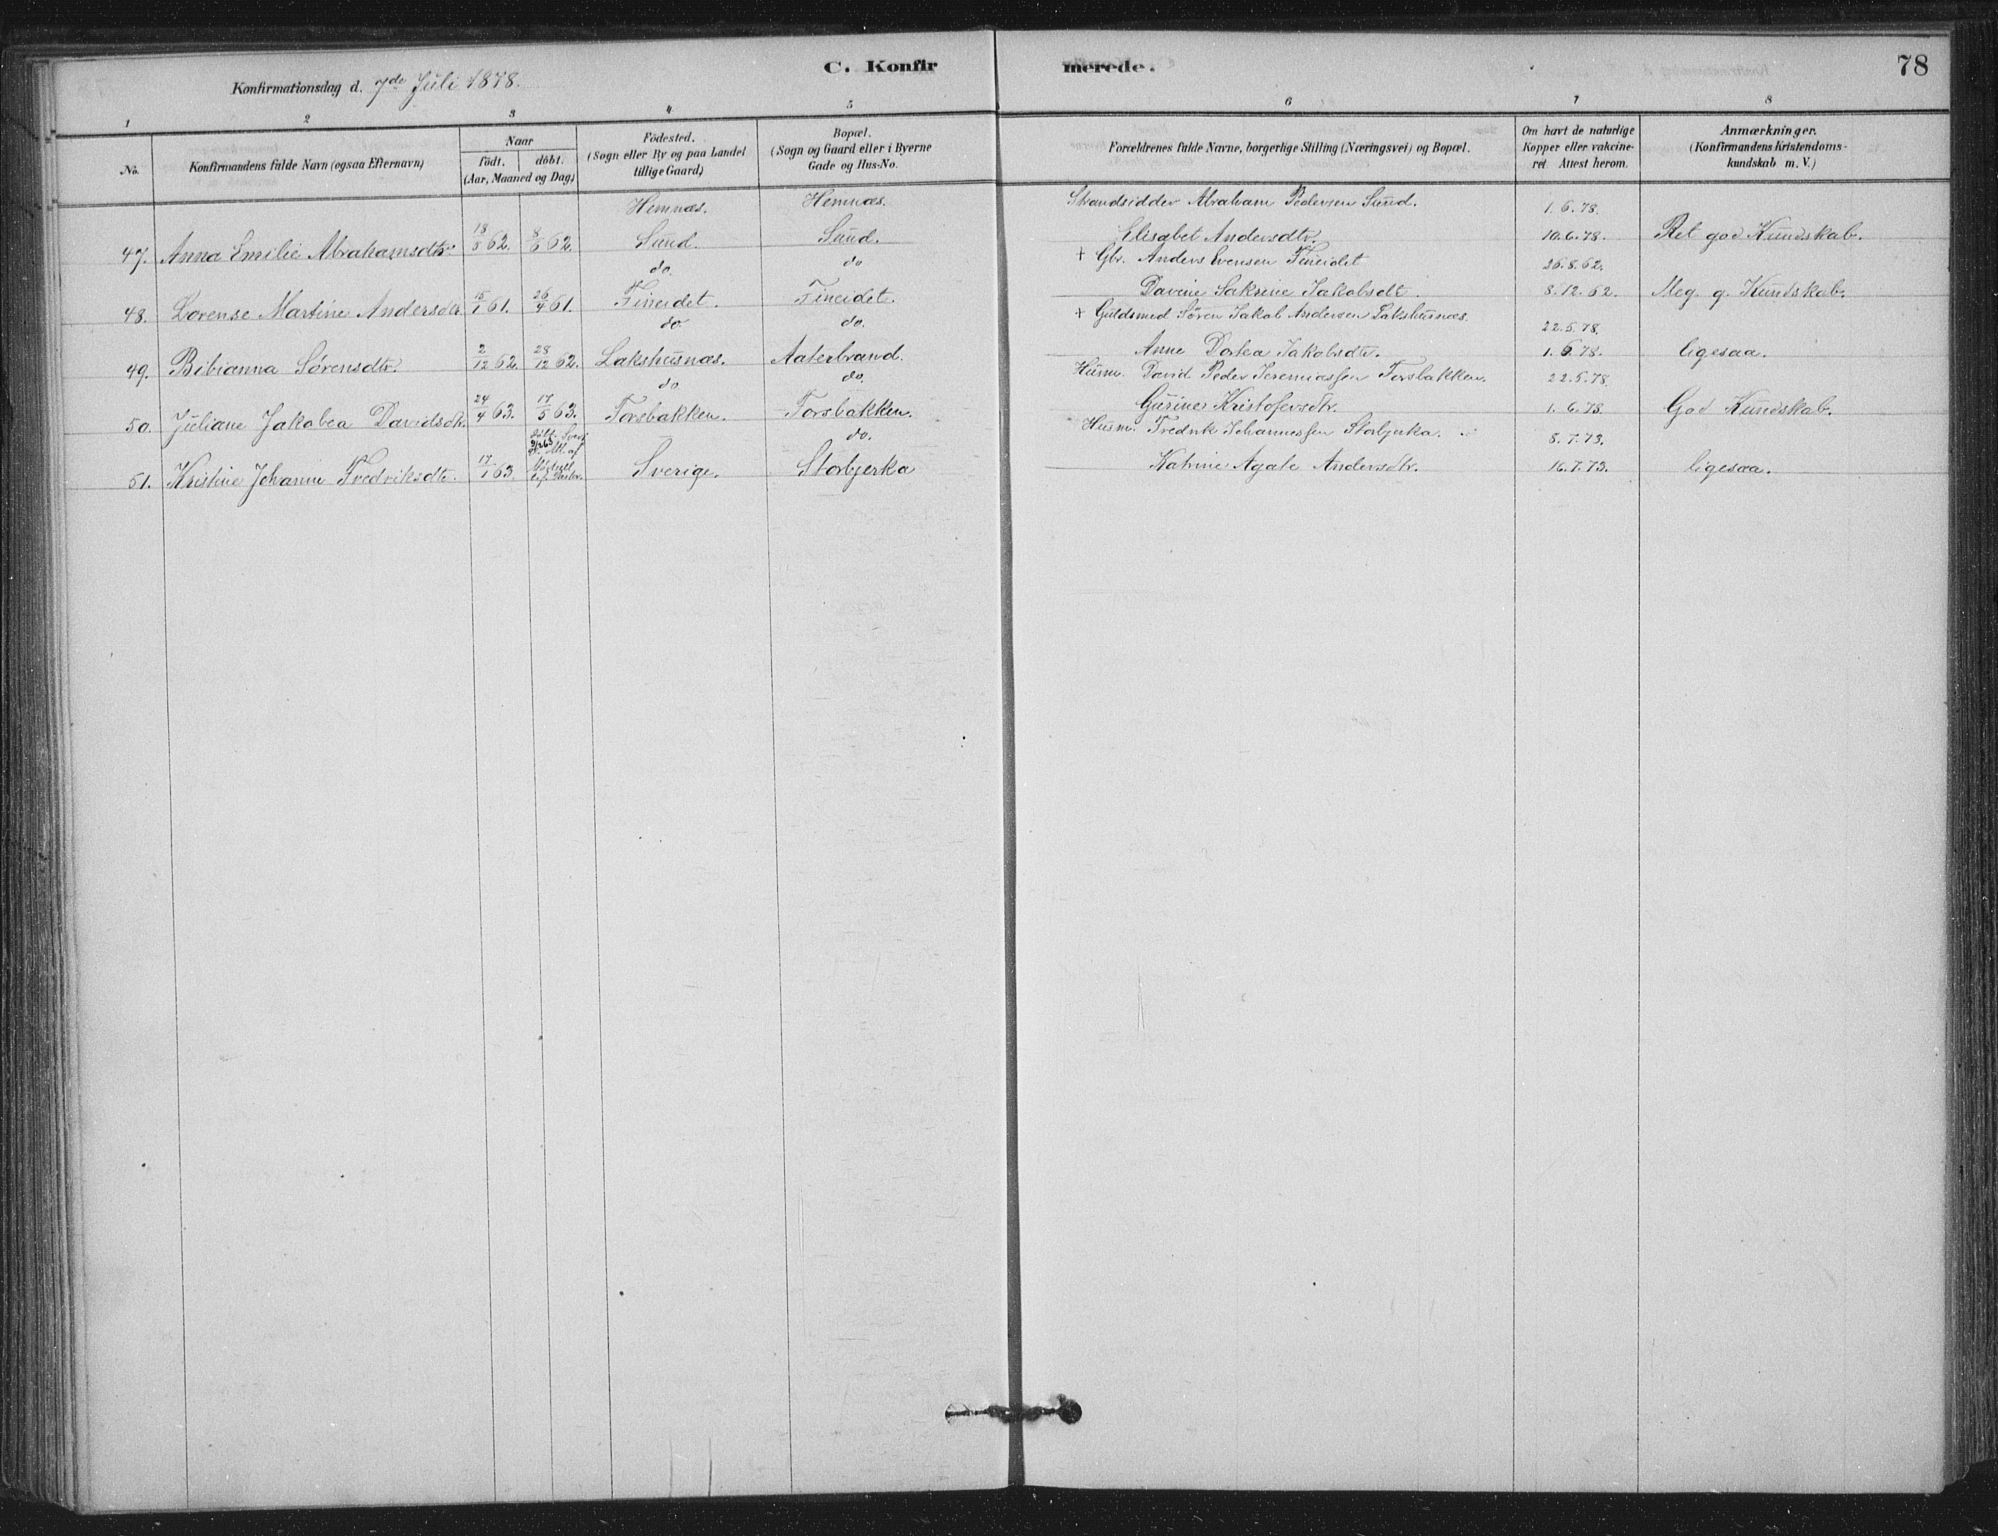 C. Konfirmerede.
78
Konfirmationsdag d. 7de Juli 1878.
1 2 3 4 5 6 7 8
No.
Konfirmandens fulde Navn (ogsaa Efternavn)
Naar
födt. döbt.
(Aar, Maaned og Dag)
Födested.
(Sogn eller By og paa Landet
tillige Gaard)
Bopæl.
(Sogn og Gaard eller i Byerne
Gade og Hus-No.
Forældrenes fulde Navne, borgerlige Stilling (Næringsvei) og Bopæl.
Om havt de naturlige
Kopper eller vakcine-
ret. Attest herom.
Anmærkninger.
(Konfirmandens Kristendoms-
kundskab m. V.)
Hemnæs. Hemnæs. Strandsidder Abraham Pedersen Sund. 1.6.78.
47. Anna Emilie Abrahamsdtr. 18/5 62. 8/6 62. Sund. Sund. Elisabet Andersdtr. 10.6.78. Ret god Kundskab.
do. do + Gbr. Anders Evensen Fineidet 26.8.62.
48. Lorense Martine Andersdtr. 15/1 61. 26/4 61. Fineidet. Fineidet. Davine Sakrine Jakobsdt. 8.12.62. Meg. g. Kundskab.
do. do. + Guldsmed Søren Jakob Andersen Lakshusnæs. 22.5.78.
49. Bibianna Sørensdtr. 2/12 62. 28/12 62. Lakshusnæs. Aaterbrand. Anne Dortea Jakobsdtr. 1.6.78. ligesaa.
do do. Husm. David Peder Jeremiassen Forsbakken. 22.5.78.
50. Juliane Jakobea Davidsdtr. 24/4 63. 17/5 63. Forsbakken. Forsbakken. Gurine Kristofersdtr. 1.6.78. God Kundskab.
do. Husm. Fredrik Johannessen Storbjerka. 8.7.73.
51. Kristine Johanne Fredriksdtr. 17/1 63. Sverige. Storbjerka Katrine Agate Andersdtr. 16.7.73. ligesaa.